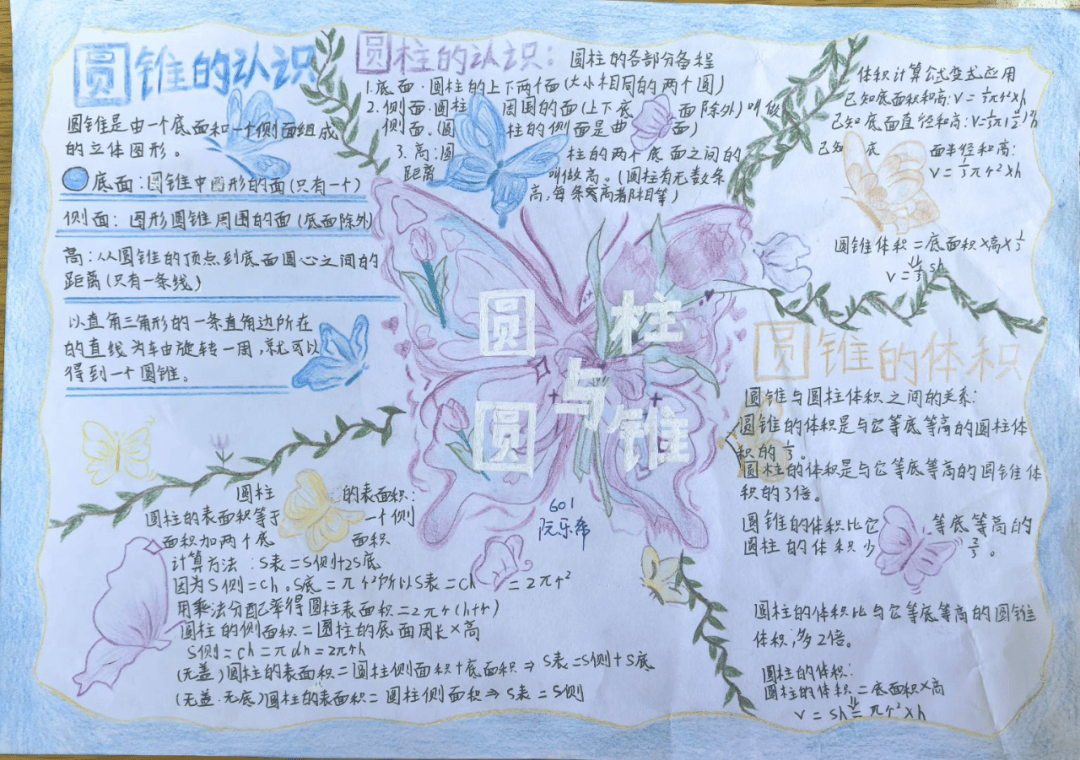 圆锥的认识
圆锥是由一个底面和一个侧面组成
的立体图形。
底面：圆锥中圆形的面(只有一个)
侧面：圆形圆锥周围的面(底面除外)
高：从圆锥的顶点到底面圆心之间的
距离(只有一条线)
以直角三角形的一条直角边所在
的直线为轴旋转一周，就可以
得到一个圆锥。
圆柱的认识：
圆柱的各部分名称
1.底面·圆柱的上下两个面(大小相同的两个圆)
2.侧面·圆柱周围的面(上下底面除外)叫做
侧面。(圆柱的侧面是曲面)
3.高：圆柱的两个底面之间的
距离叫做高。(圆柱有无数条
高，每条高都相等)
体积计算公式变式应用
已知底面积和高：V=⅓πr²×h
已知底面直径和高：V=⅓π(½)²h
已知底面半径和高：
V=⅓πr²×h
圆锥体积=底面积×高×⅓
V=⅓sh
圆柱
与
圆锥
601
阮乐希
圆锥的体积
圆锥与圆柱体积之间的关系：
圆锥的体积是与它等底等高的圆柱体
积的⅓。
圆柱的体积是与它等底等高的圆锥体
积的3倍。
圆锥的体积比它等底等高的
圆柱的体积少⅔。
圆柱的体积比与它等底等高的圆锥
体积，多2倍。
圆柱的体积：
圆柱的体积=底面积×高
V=sh=πr²×h
圆柱的表面积：
圆柱的表面积等于一个侧
面积加两个底面积
计算方法：S表=S侧+2S底
因为S侧=ch。S底=πr²所以S表=ch=2πr²
用乘法分配率得圆柱表面积=2πr(h+r)
圆柱的侧面积=圆柱的底面周长×高
S侧=ch=πdh=2πrh
(无盖)圆柱的表面积=圆柱侧面积+底面积⇒S表=S侧+S底
(无盖·无底)圆柱的表面积=圆柱侧面积⇒S表=S侧